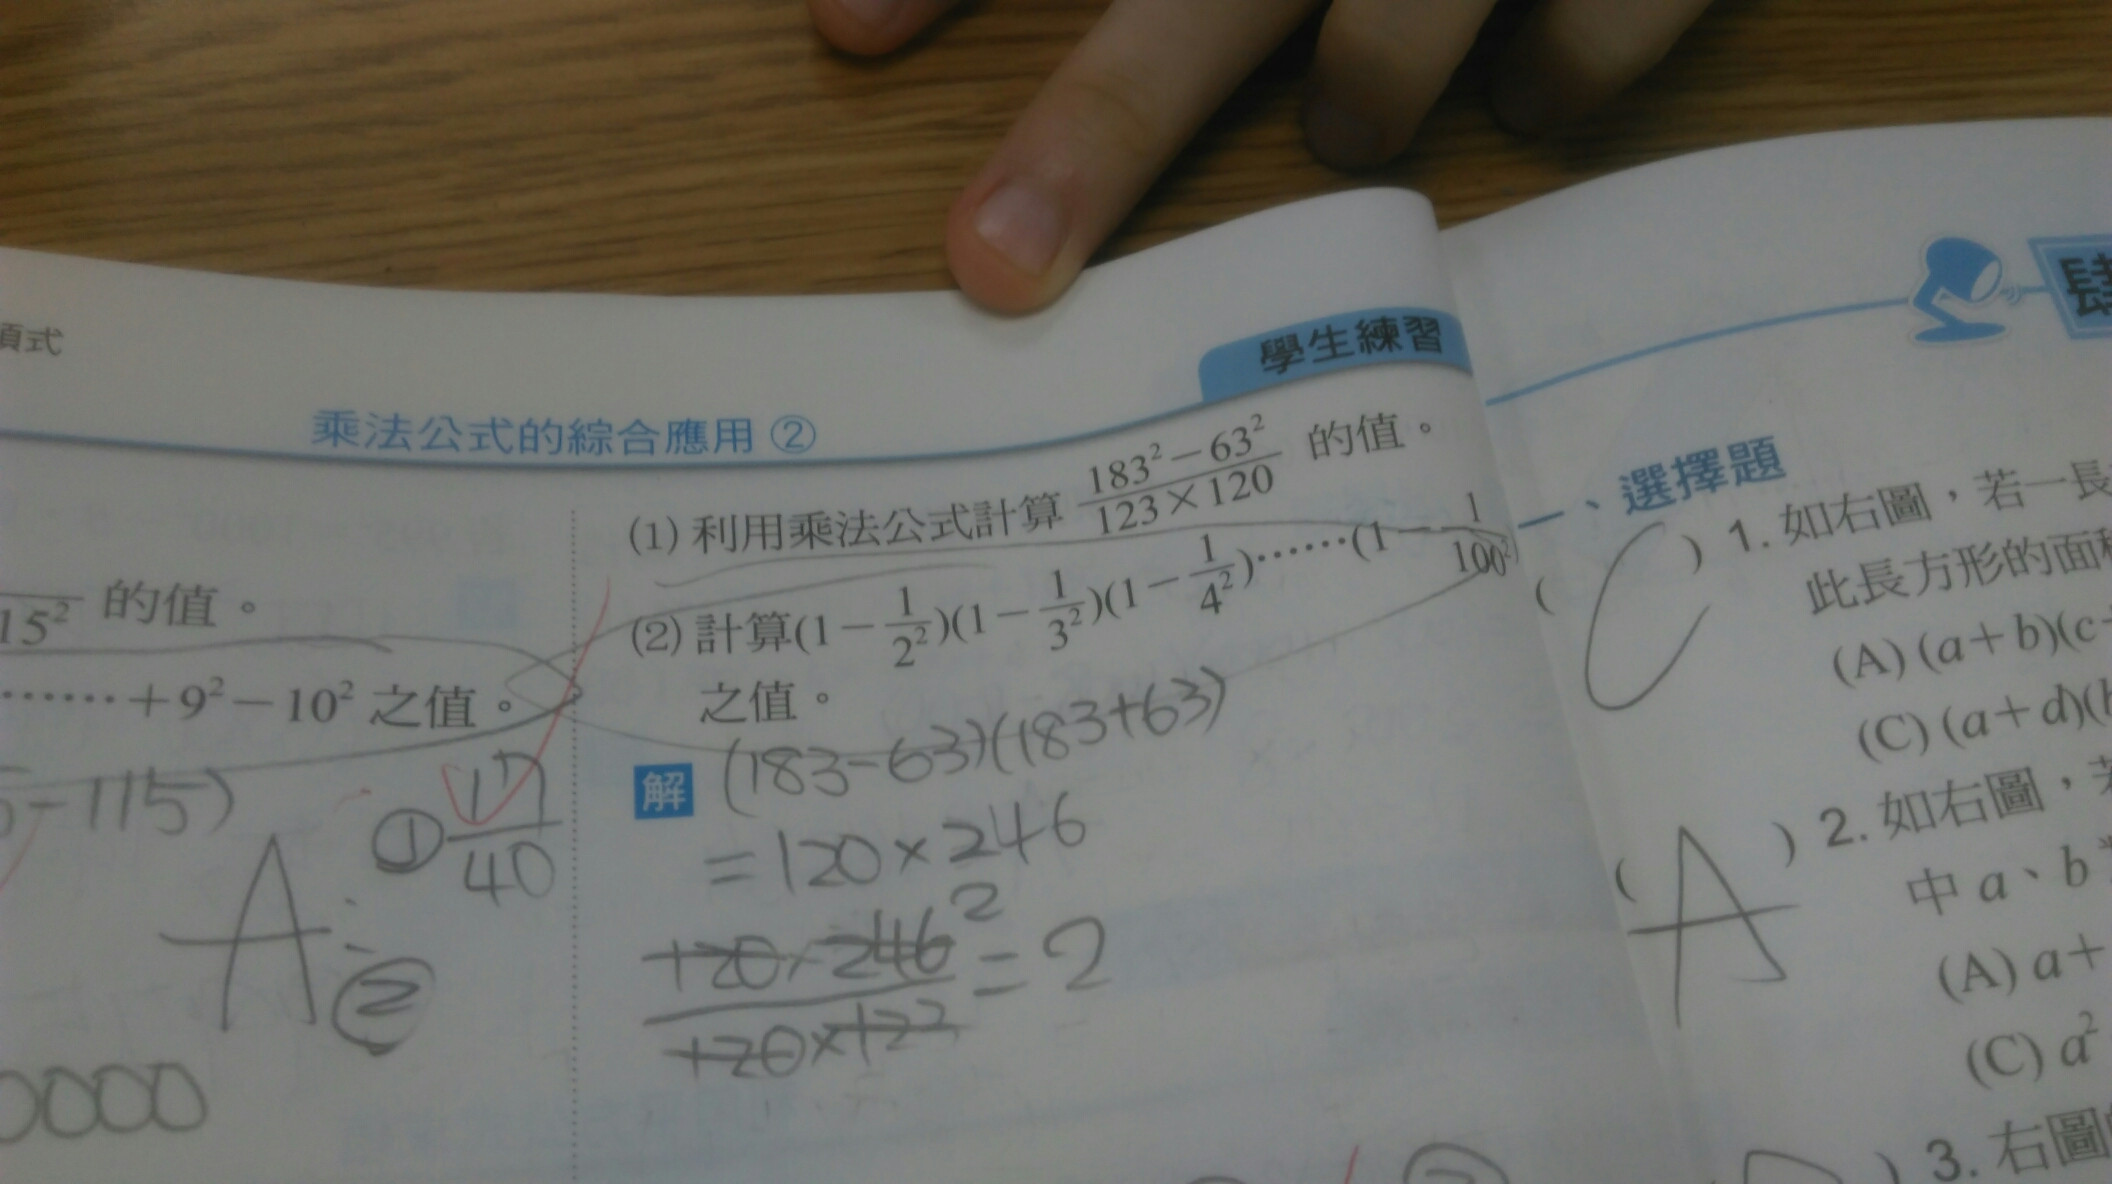 項式
乘法公式的綜合應用②
15² 的值。
……+9²-10² 之值。
-115)
A: ① 17/40
②
0000
學生練習
(1) 利用乘法公式計算 (183²-63²)/(123×120) 的值。
(2) 計算(1-1/2²)(1-1/3²)(1-1/4²)……(1-1/100²)
之值。
解 (183-63)(183+63)
=120×246
120×246 2
120×123 =2
肆
一、選擇題
( C ) 1. 如右圖,若一長
此長方形的面積
(A) (a+b)(c+
(C) (a+d)(b
( A ) 2. 如右圖,若
中 a、b
(A) a+
(C) a²
) 3. 右圖的